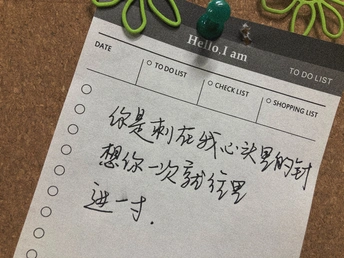 Hello, I am
TO DO LIST
DATE
TO DO LIST
CHECK LIST
SHOPPING LIST
你是刺在我心头里的针
想你一次就往里
进一寸.